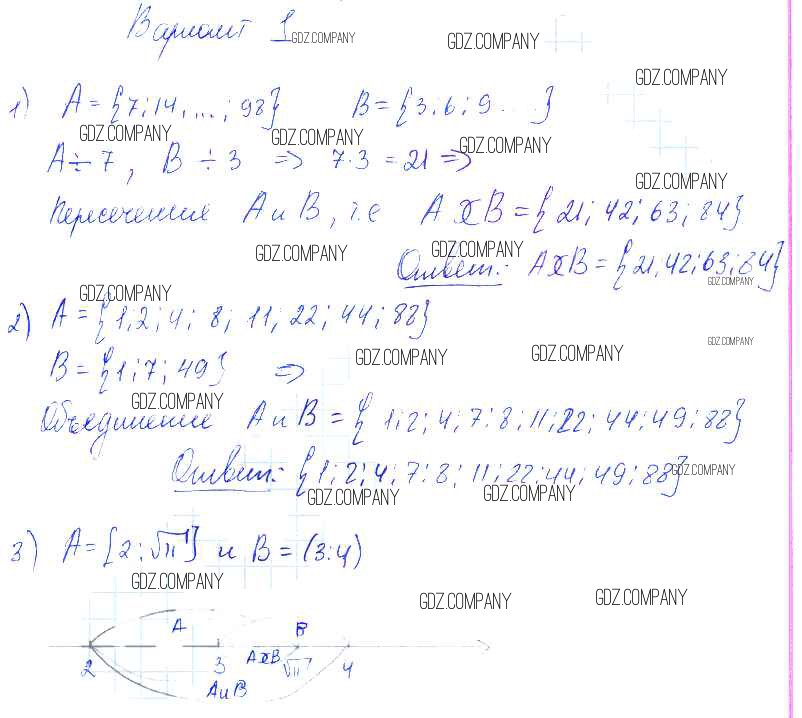 Вариант 1 GDZ.COMPANY GDZ.COMPANY
GDZ.COMPANY
1) A = {7; 14, ...; 98} B = {3; 6; 9 ...}
GDZ.COMPANY GDZ.COMPANY GDZ.COMPANY
A ÷ 7, B ÷ 3 => 7·3 = 21 =>
GDZ.COMPANY
Пересечение A и B, т.е A X B = {21; 42; 63; 84}
GDZ.COMPANY GDZ.COMPANY
Ответ: A X B = {21, 42; 63; 84}
GDZ.COMPANY GDZ.COMPANY
2) A = {1; 2; 4; 8; 11, 22; 44; 88}
GDZ.COMPANY GDZ.COMPANY GDZ.COMPANY
B = {1; 7; 49} =>
GDZ.COMPANY
Объединение A и B = {1; 2; 4; 7; 8; 11; 22; 44; 49; 88}
Ответ: {1; 2; 4; 7; 8; 11; 22; 44; 49; 88} GDZ.COMPANY
GDZ.COMPANY GDZ.COMPANY
3) A = [2; √π] и B = (3; 4)
GDZ.COMPANY GDZ.COMPANY GDZ.COMPANY
A B
2 3 AXB √π 4
A и B